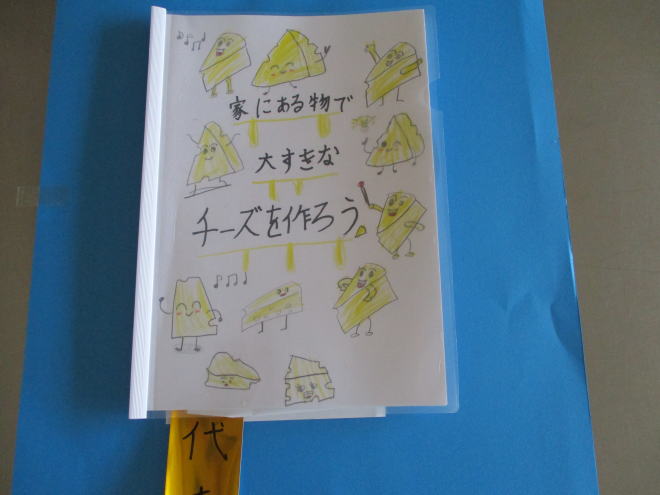 家にある物で
大すきな
チーズを作ろう
代